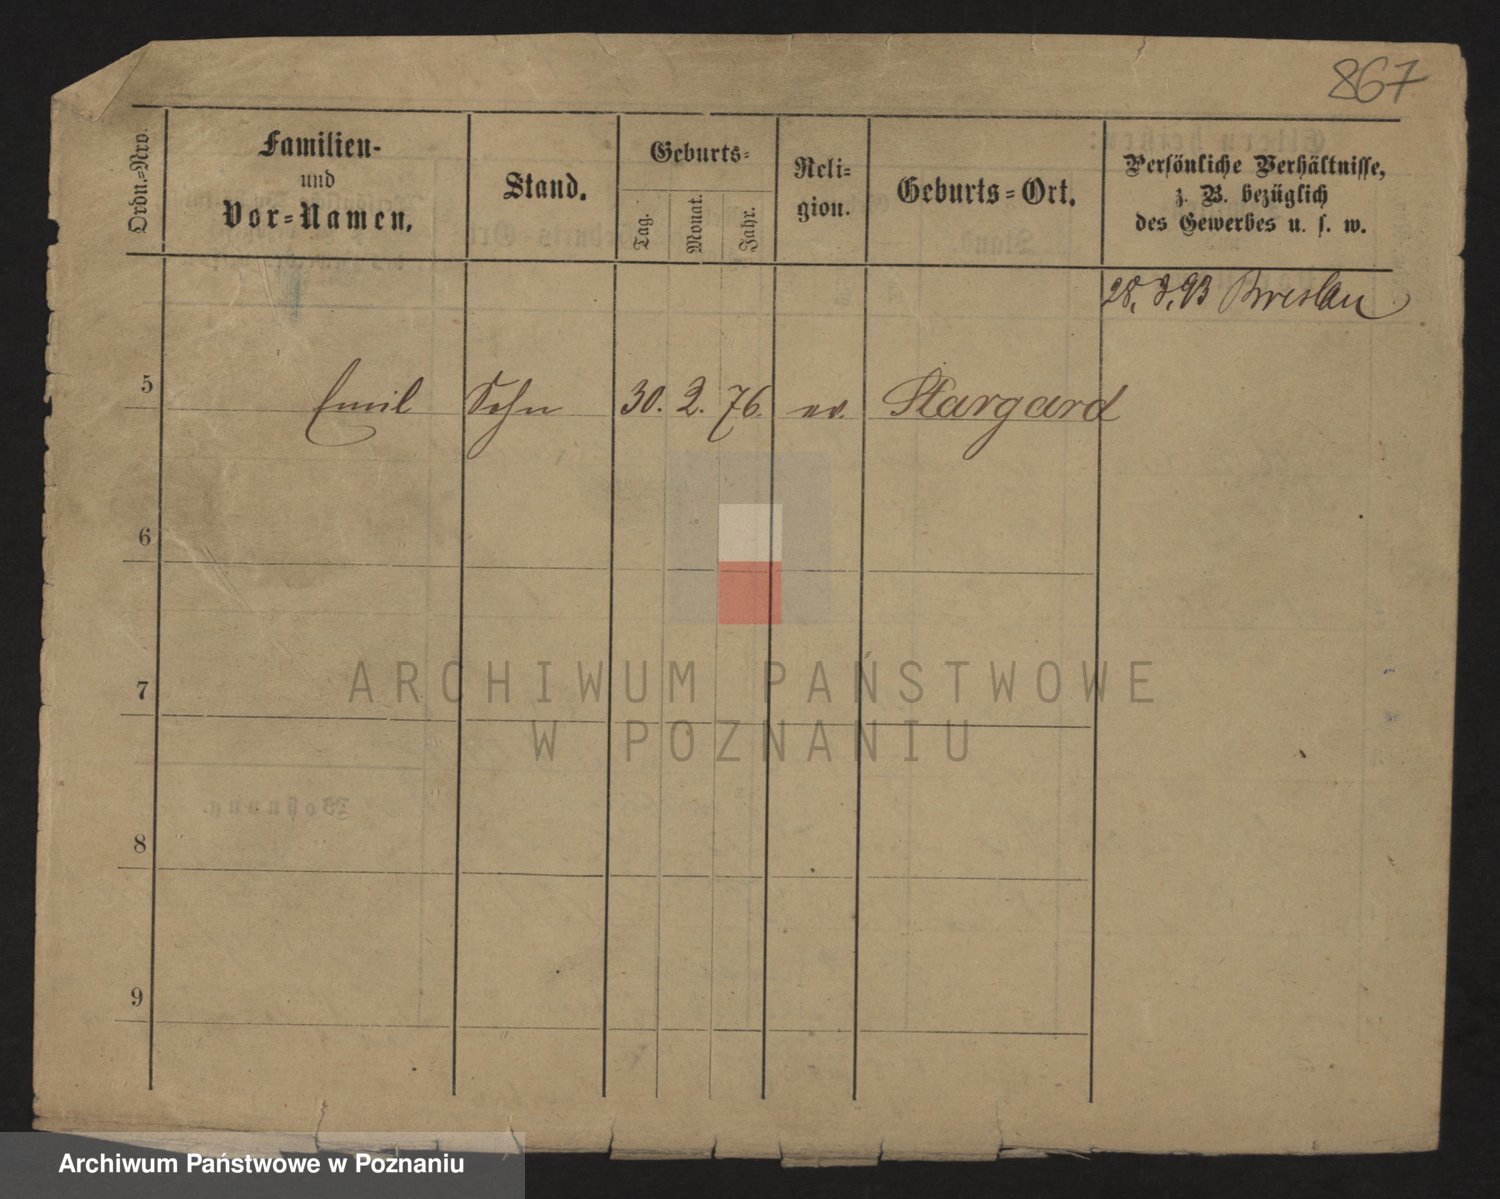 867
Ordn.-Nro.
Familien-
und
Vor-Namen.
Stand.
Geburts-
Tag.
Monat.
Jahr.
Reli-
gion.
Geburts-Ort.
Persönliche Verhältnisse,
z. B. bezüglich
des Gewerbes u. s. w.
28. 3. 93 Breslau
5 Emil Sohn 30. 2. 76. ev. Stargard
6
7
8
9
ARCHIWUM PAŃSTWOWE
W POZNANIU
Wohnung.
Archiwum Państwowe w Poznaniu